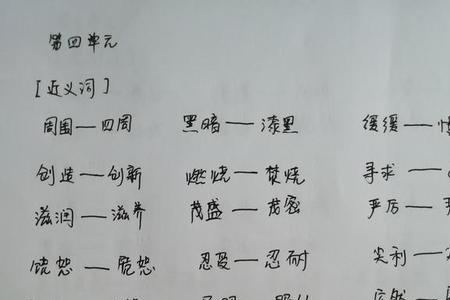 第四单元
[近义词]
周围——四周 黑暗——漆黑 缓缓——
创造——创新 燃烧——焚烧 寻求——
滋润——滋养 茂盛——茂密 严厉——
饶恕——宽恕 忍受——忍耐 尖利——